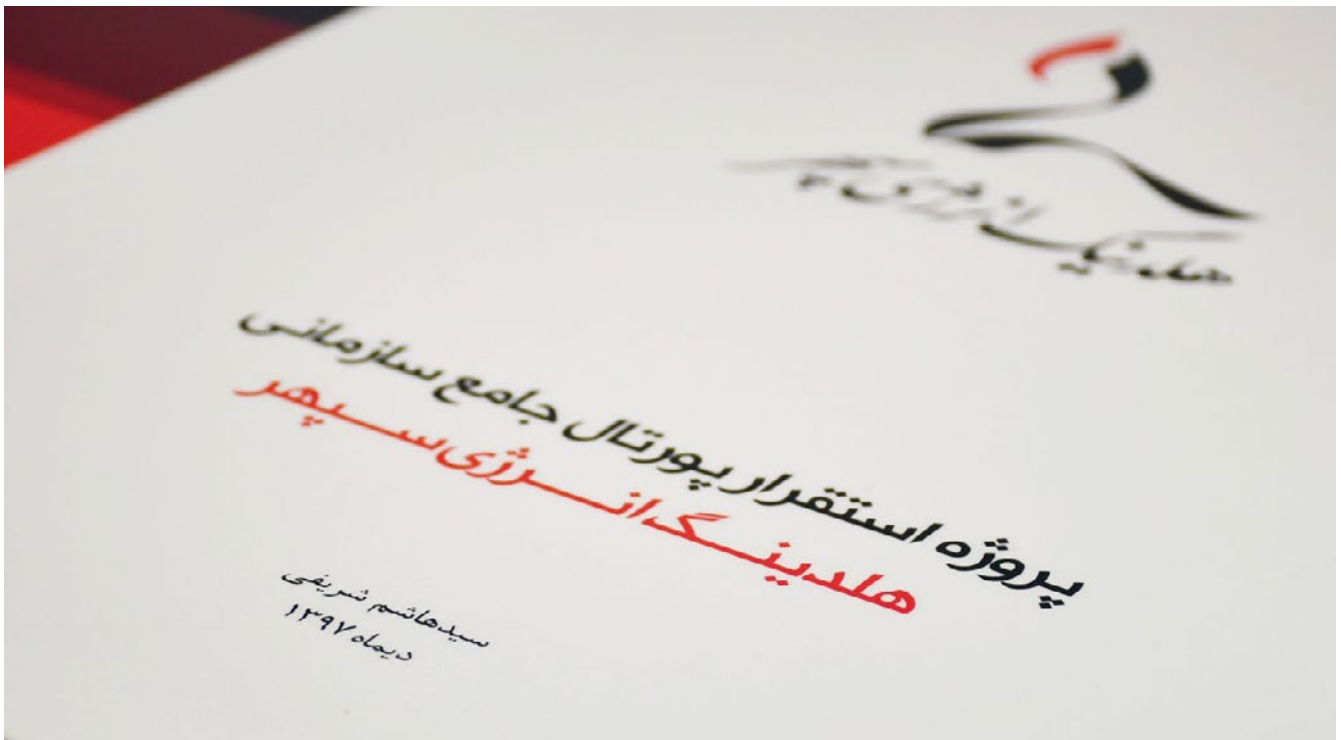 هلدینگ انرژی سپهر
پروژه استقرار پورتال جامع سازمانی
هلدینگ انرژی سپهر
سیدهاشم شریفی
دیماه ۱۳۹۷